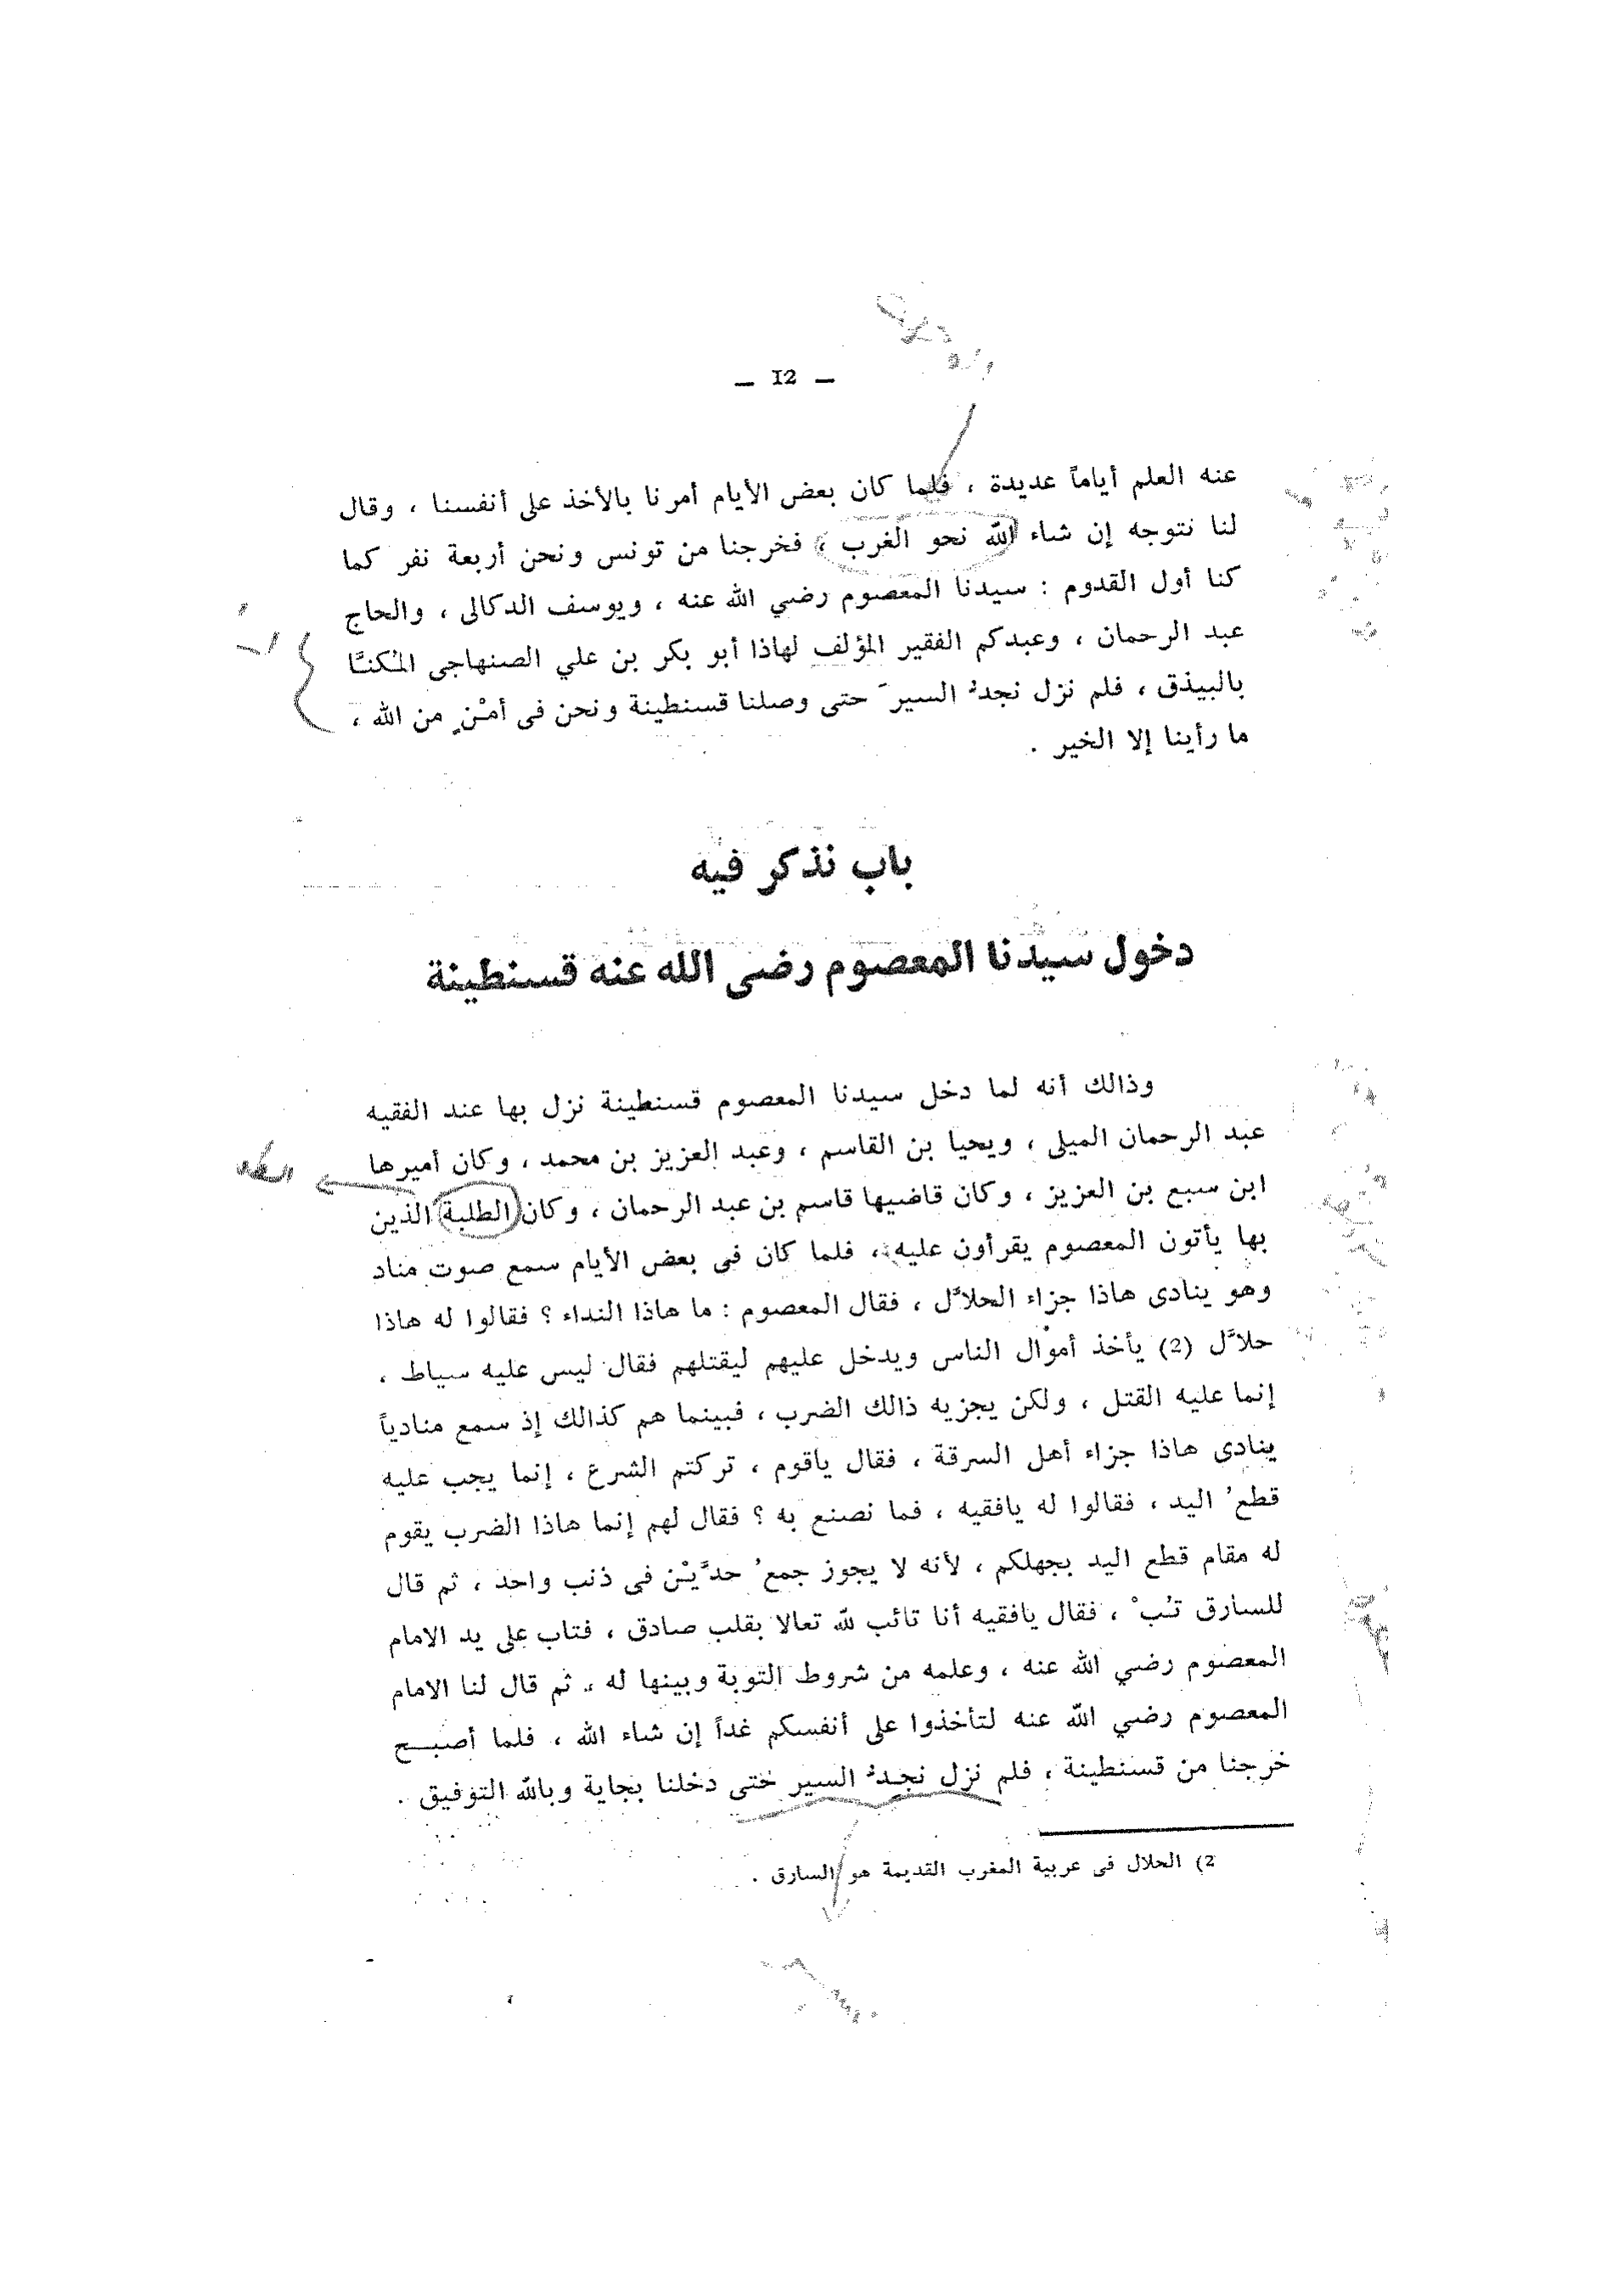 — 12 —
عنه العلم أياماً عديدة ، فلما كان بعض الأيام أمرنا بالأخذ على أنفسنا ، وقال
لنا نتوجه إن شاء الله نحو الغرب ، فخرجنا من تونس ونحن أربعة نفر كما
كنا أول القدوم : سيدنا المعصوم رضي الله عنه ، ويوسف الدكالى ، والحاج
عبد الرحمان ، وعبدكم الفقير المؤلف لهاذا أبو بكر بن علي الصنهاجى المُكنـَّا
بالبيذق ، فلم نزل نجدُّ السيرَ حتى وصلنا قسنطينة ونحن فى أمْنٍ من الله ،
ما رأينا إلا الخير .
باب نذكر فيه
دخول سيدنا المعصوم رضى الله عنه قسنطينة
وذالك أنه لما دخل سيدنا المعصوم قسنطينة نزل بها عند الفقيه
عبد الرحمان الميلى ، ويحيا بن القاسم ، وعبد العزيز بن محمد ، وكان أميرها
ابن سبع بن العزيز ، وكان قاضيها قاسم بن عبد الرحمان ، وكان الطلبة الذين
بها يأتون المعصوم يقرأون عليه ، فلما كان فى بعض الأيام سمع صوت مناد
وهو ينادى هاذا جزاء الحلاَّل ، فقال المعصوم : ما هاذا النداء ؟ فقالوا له هاذا
حلاَّل (2) يأخذ أموال الناس ويدخل عليهم ليقتلهم فقال ليس عليه سياط ،
إنما عليه القتل ، ولكن يجزيه ذالك الضرب ، فبينما هم كذالك إذ سمع منادياً
ينادى هاذا جزاء أهل السرقة ، فقال ياقوم ، تركتم الشرع ، إنما يجب عليه
قطعُ اليد ، فقالوا له يافقيه ، فما نصنع به ؟ فقال لهم إنما هاذا الضرب يقوم
له مقام قطع اليد بجهلكم ، لأنه لا يجوز جمعُ حدَّيْن فى ذنب واحد ، ثم قال
للسارق تُبْ ، فقال يافقيه أنا تائب لله تعالا بقلب صادق ، فتاب على يد الامام
المعصوم رضي الله عنه ، وعلمه من شروط التوبة وبينها له ، ثم قال لنا الامام
المعصوم رضي الله عنه لتأخذوا على أنفسكم غداً إن شاء الله ، فلما أصبـــح
خرجنا من قسنطينة ، فلم نزل نجدُّ السير حتى دخلنا بجاية وبالله التوفيق .
2) الحلال فى عربية المغرب القديمة هو السارق .